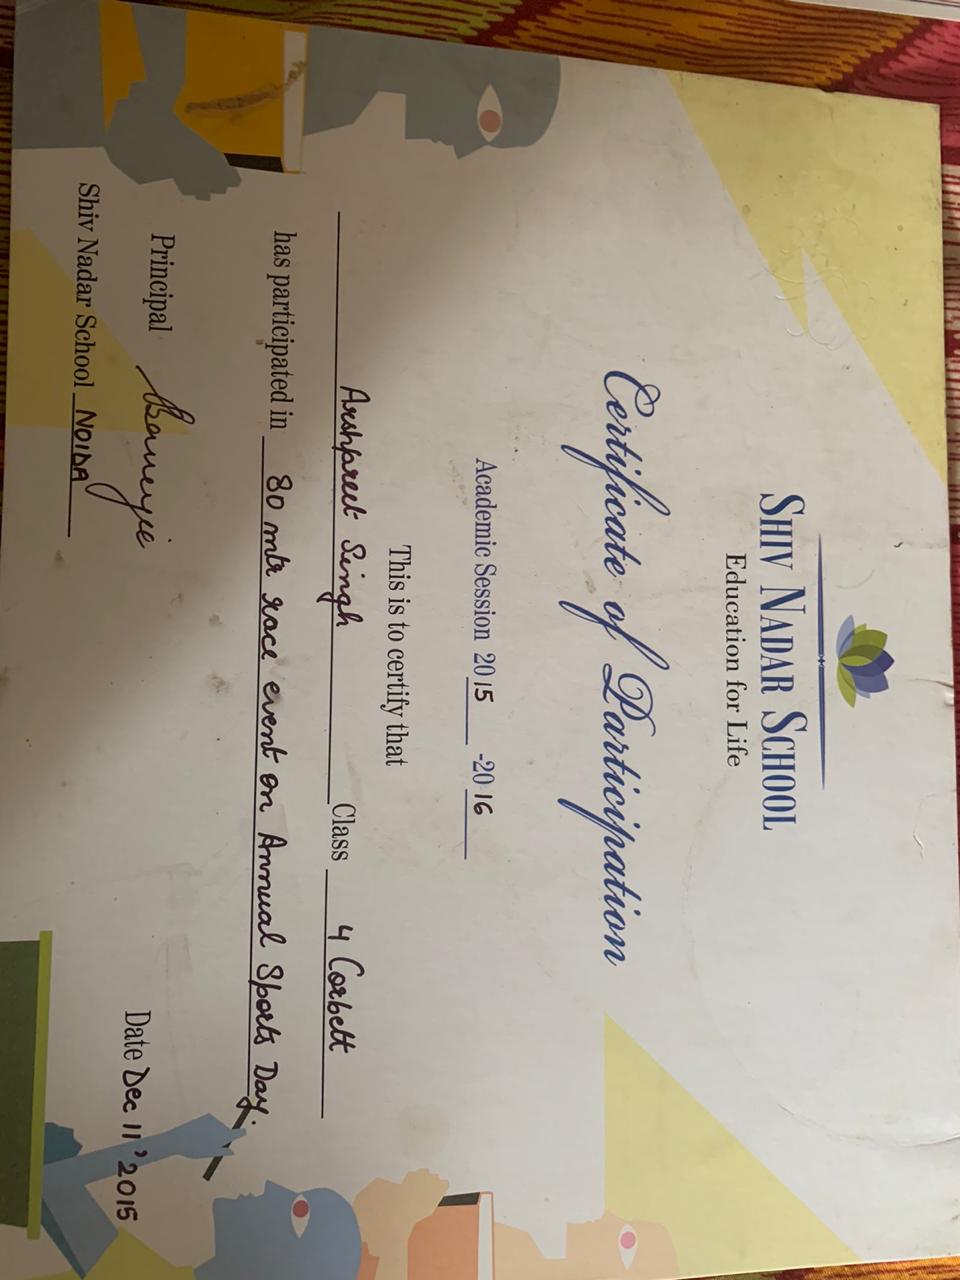 SHIV NADAR SCHOOL
Education for Life
Certificate of Participation
Academic Session 2015 -2016
This is to certify that
Arshpreet Singh Class 4 Corbett
has participated in 80 mtr race event on Annual Sports Day.
Principal Banerjee Date Dec 11' 2015
Shiv Nadar School NOIDA